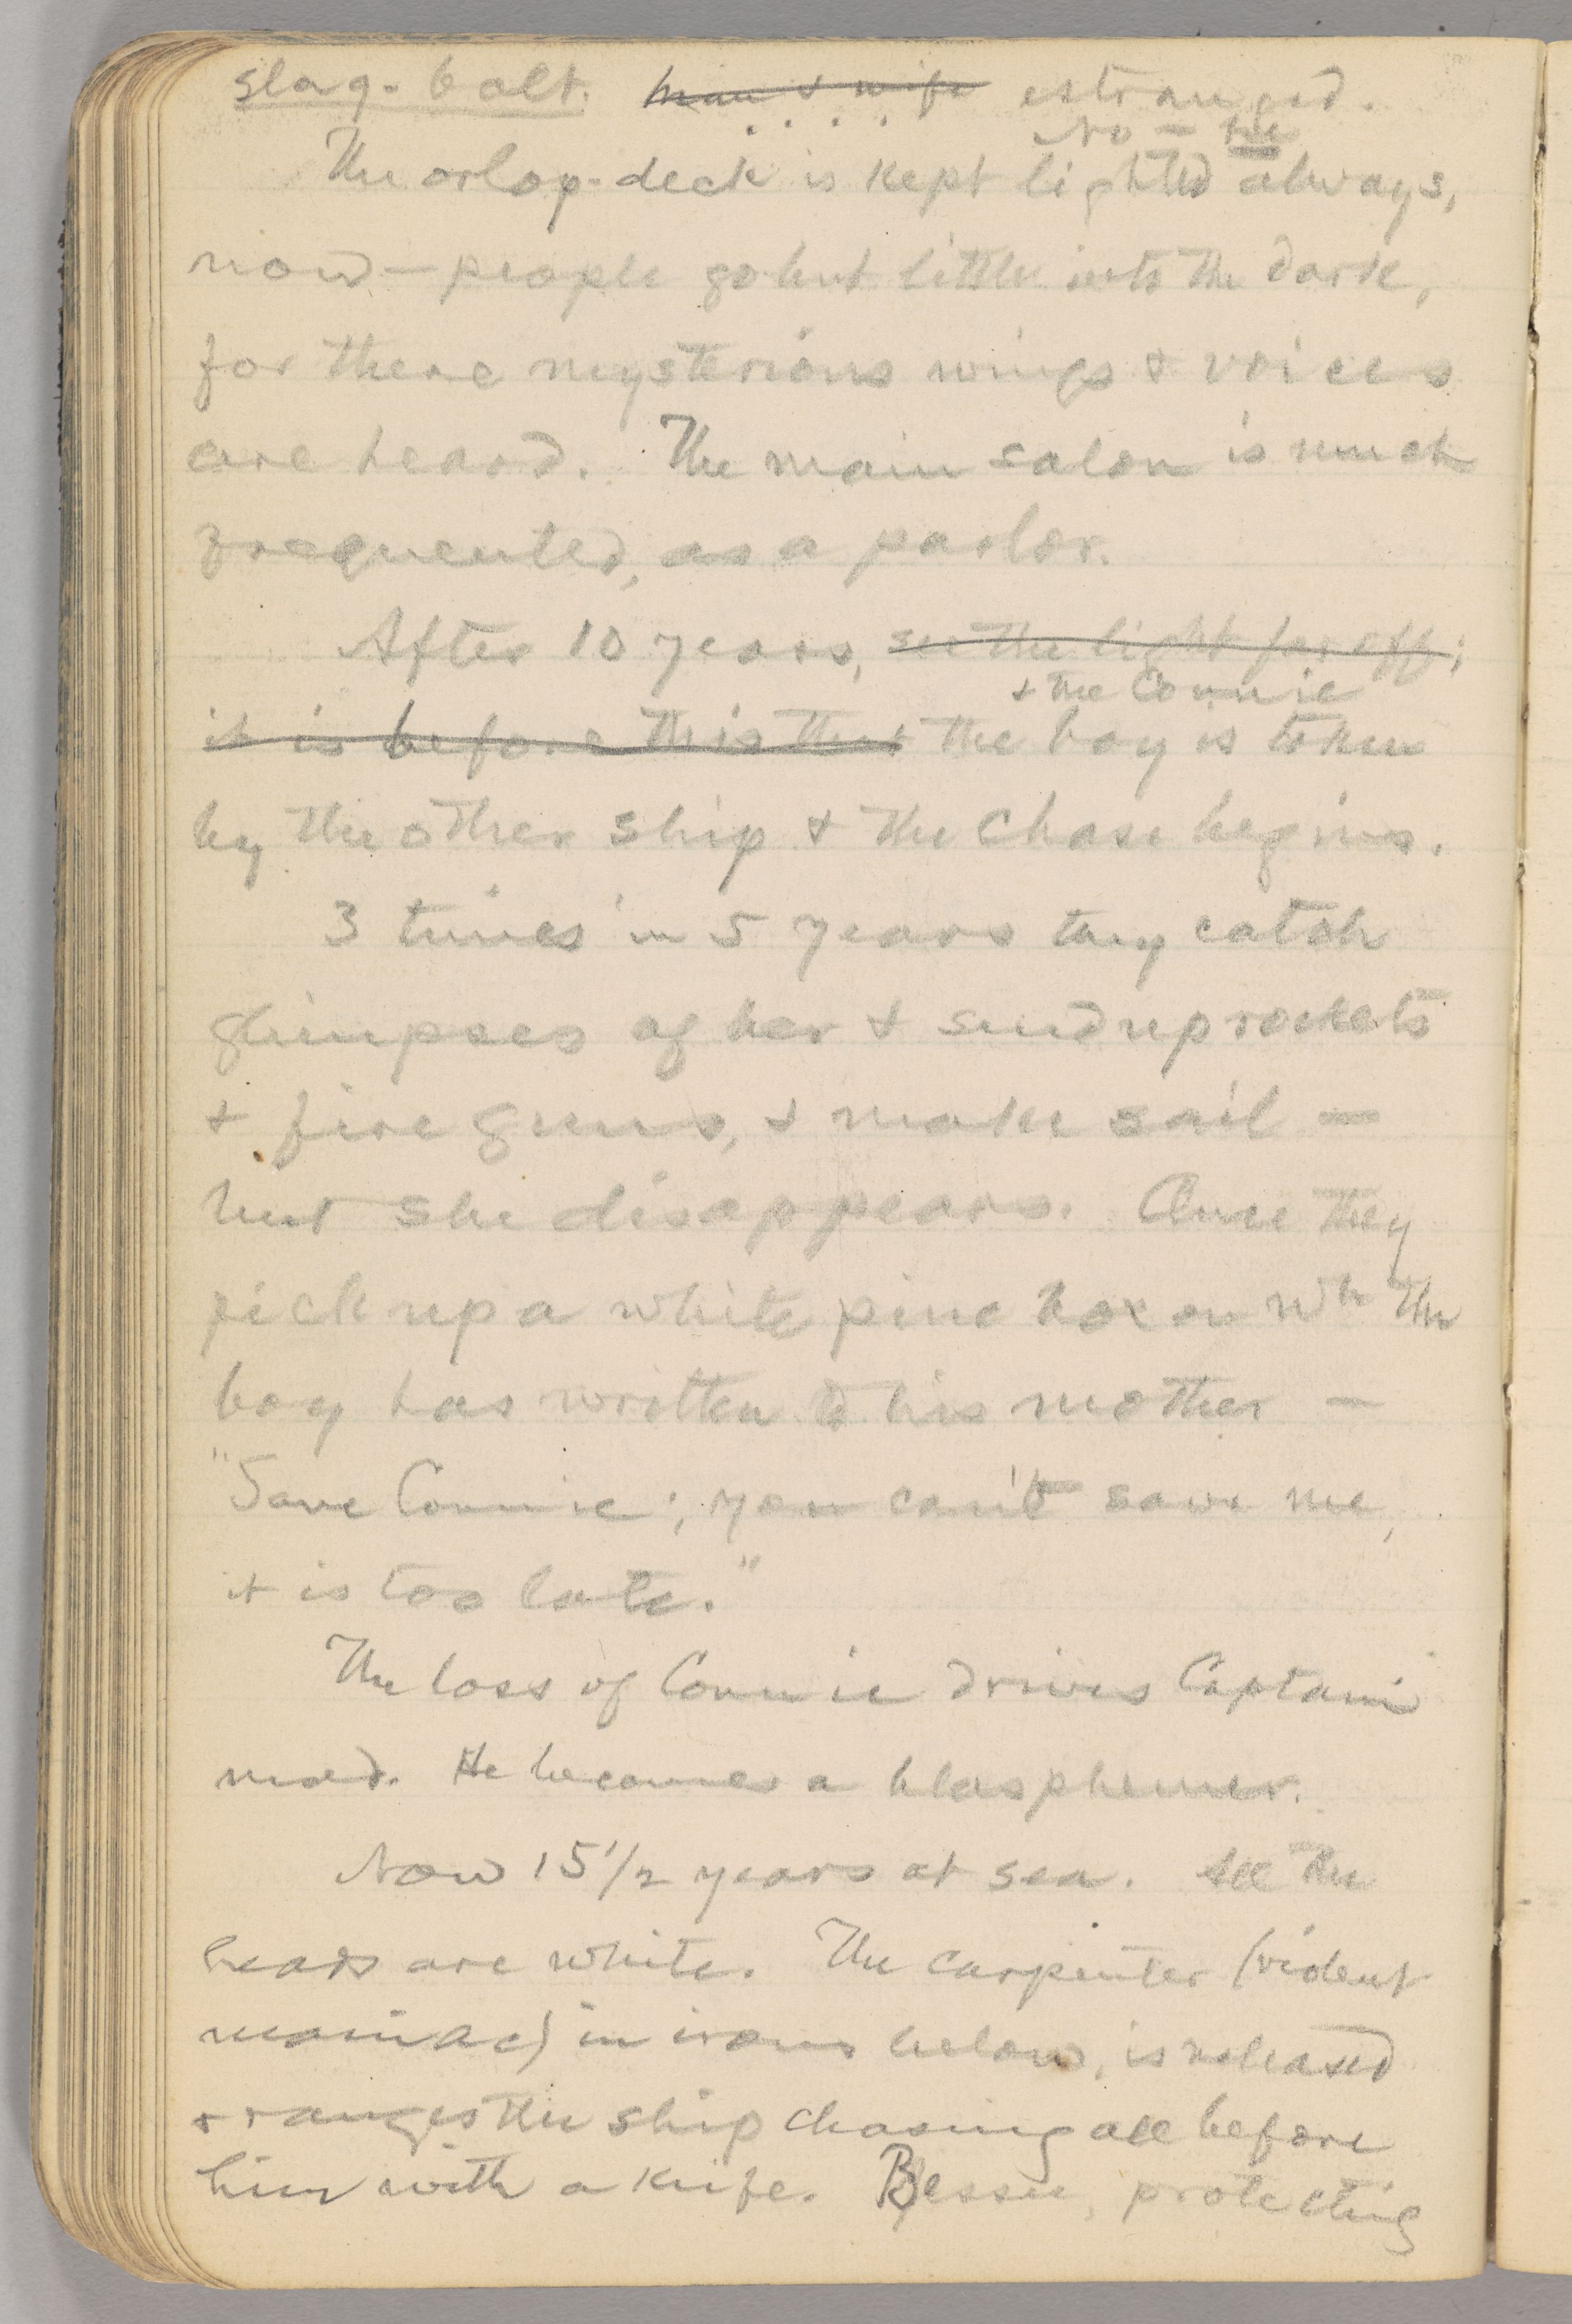 slag-bolt. man & wife estranged.
No — tue
The orlop-deck is kept lighted always,
now — people go but little into the dark,
for there mysterious wings & voices
are heard. The main salon is much
frequented, as a parlor.
After 10 years, see the light far off;
& the Connie
it is before this that the boy is taken
by the other ship & the chase begins.
3 times in 5 years they catch
glimpses of her & send up rockets
& fire guns, & make sail —
but she disappears. Once they
pick up a white pine box on wh the
boy has written to his mother —
"Save Connie; you can't save me,
it is too late."
The loss of Connie drives Captain
mad. He becomes a blasphemer.
Now 15½ years at sea. All the
heads are white. The carpenter (violent
maniac) in irons below, is released
& ranges the ship chasing all before
him with a knife. Bessie, protecting